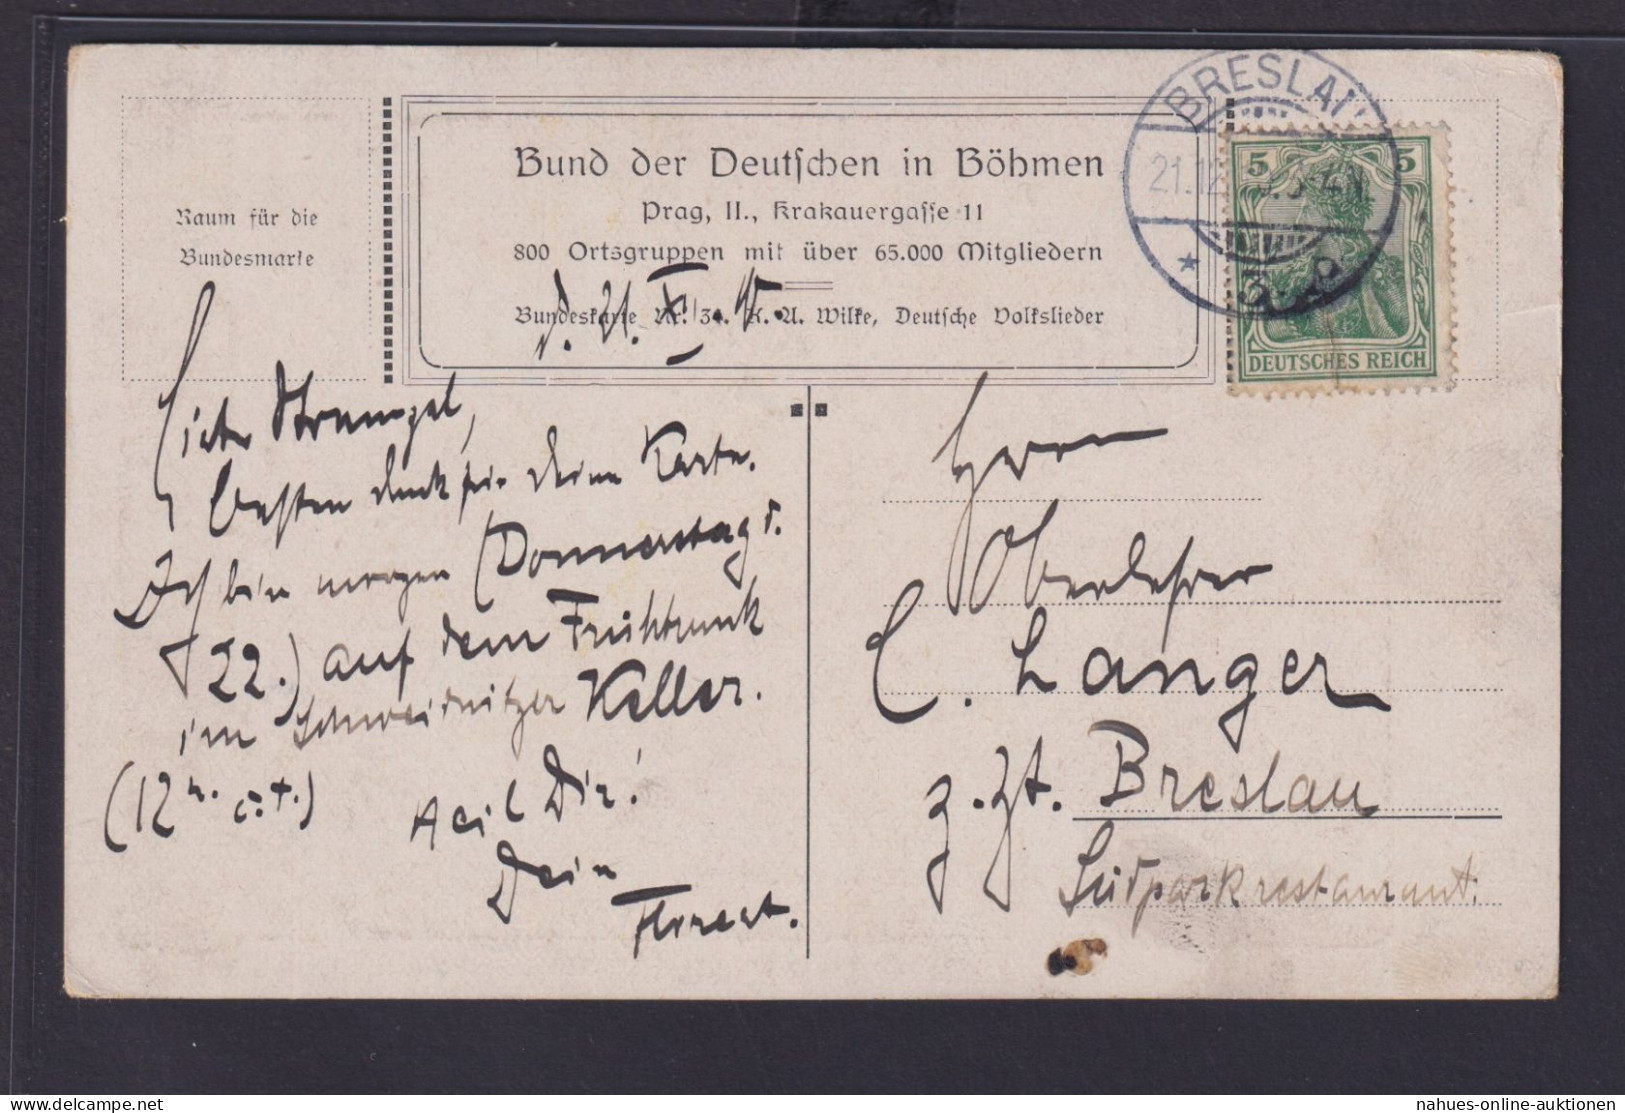 Raum für die
Bundesmarke
Bund der Deutschen in Böhmen
Prag, II., Krakauergasse 11
800 Ortsgruppen mit über 65.000 Mitgliedern
Bundeskarte Nr. 3 K. A. Wilke, Deutsche Volkslieder
BRESLAU
21.12. 3-4N
* 3.
5 5
DEUTSCHES REICH
besten Dank für Deine Karte.
Ich bin morgen (Donnerstag d.
22.) auf dem Frühtrunk
im Schweidnitzer Keller.
(12 h. c. t.)
Heil Dir!
Dein
Herrn
Oberlehrer
C. Langer
z. Zt. Breslau
Südparkrestaurant.
nahues-online-auktionen